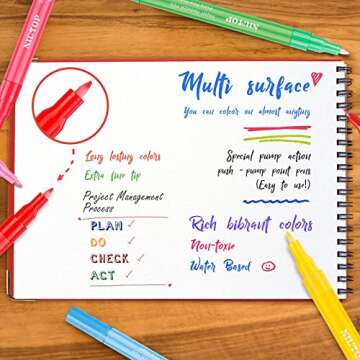 NICTOP
NICTOP
Multi surface
You can coloor on almost anyting
Long lasting colors
Extra fine tip
Project Management
Process
PLAN ✓
DO ✓
CHECK ✓
ACT ✓
Special pump action
push - pump point pens
(Easy to use!)
Rich bibrant colors
Non-toxic
Water Based
NICTOP